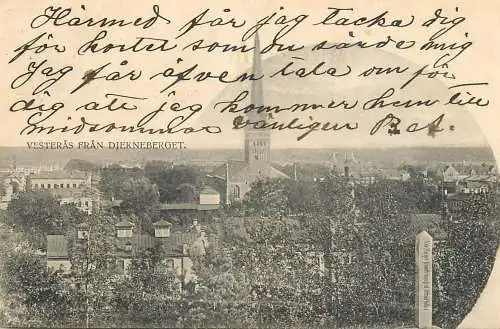 Härmed får jag tacka dig
för kortet som du sände mig
Jag får äfven tala om för
dig att jag kommer hem till
midsommar vänligen
VESTERÅS FRÅN DJEKNEBERGET.